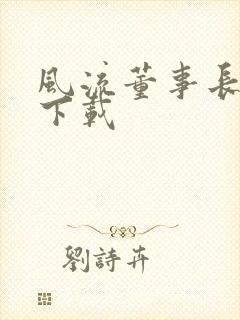 風流董事長
下載
劉詩卉